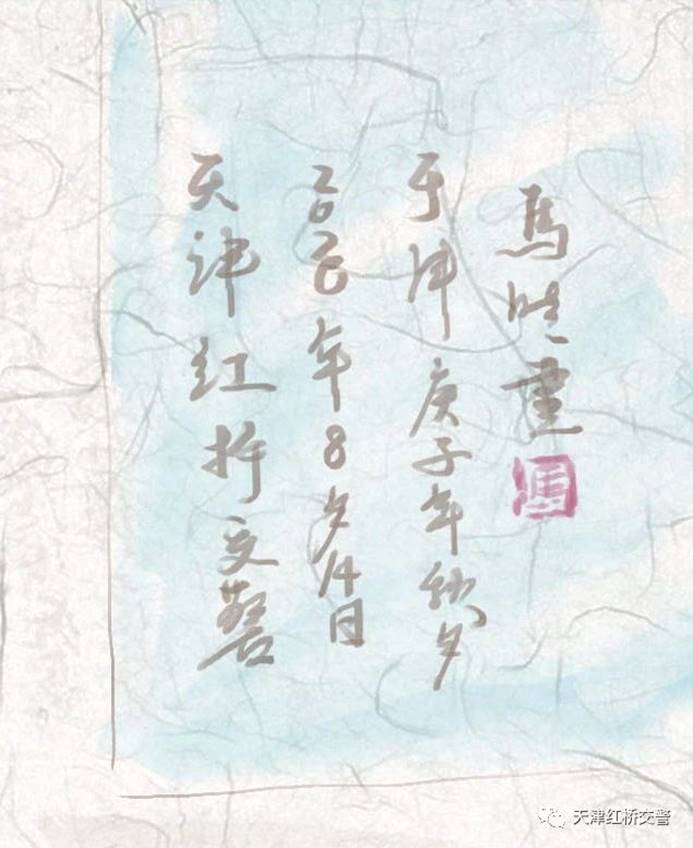 馬
于津庚子年秋夕
2020年8月14日
天津红桥交警
天津红桥交警